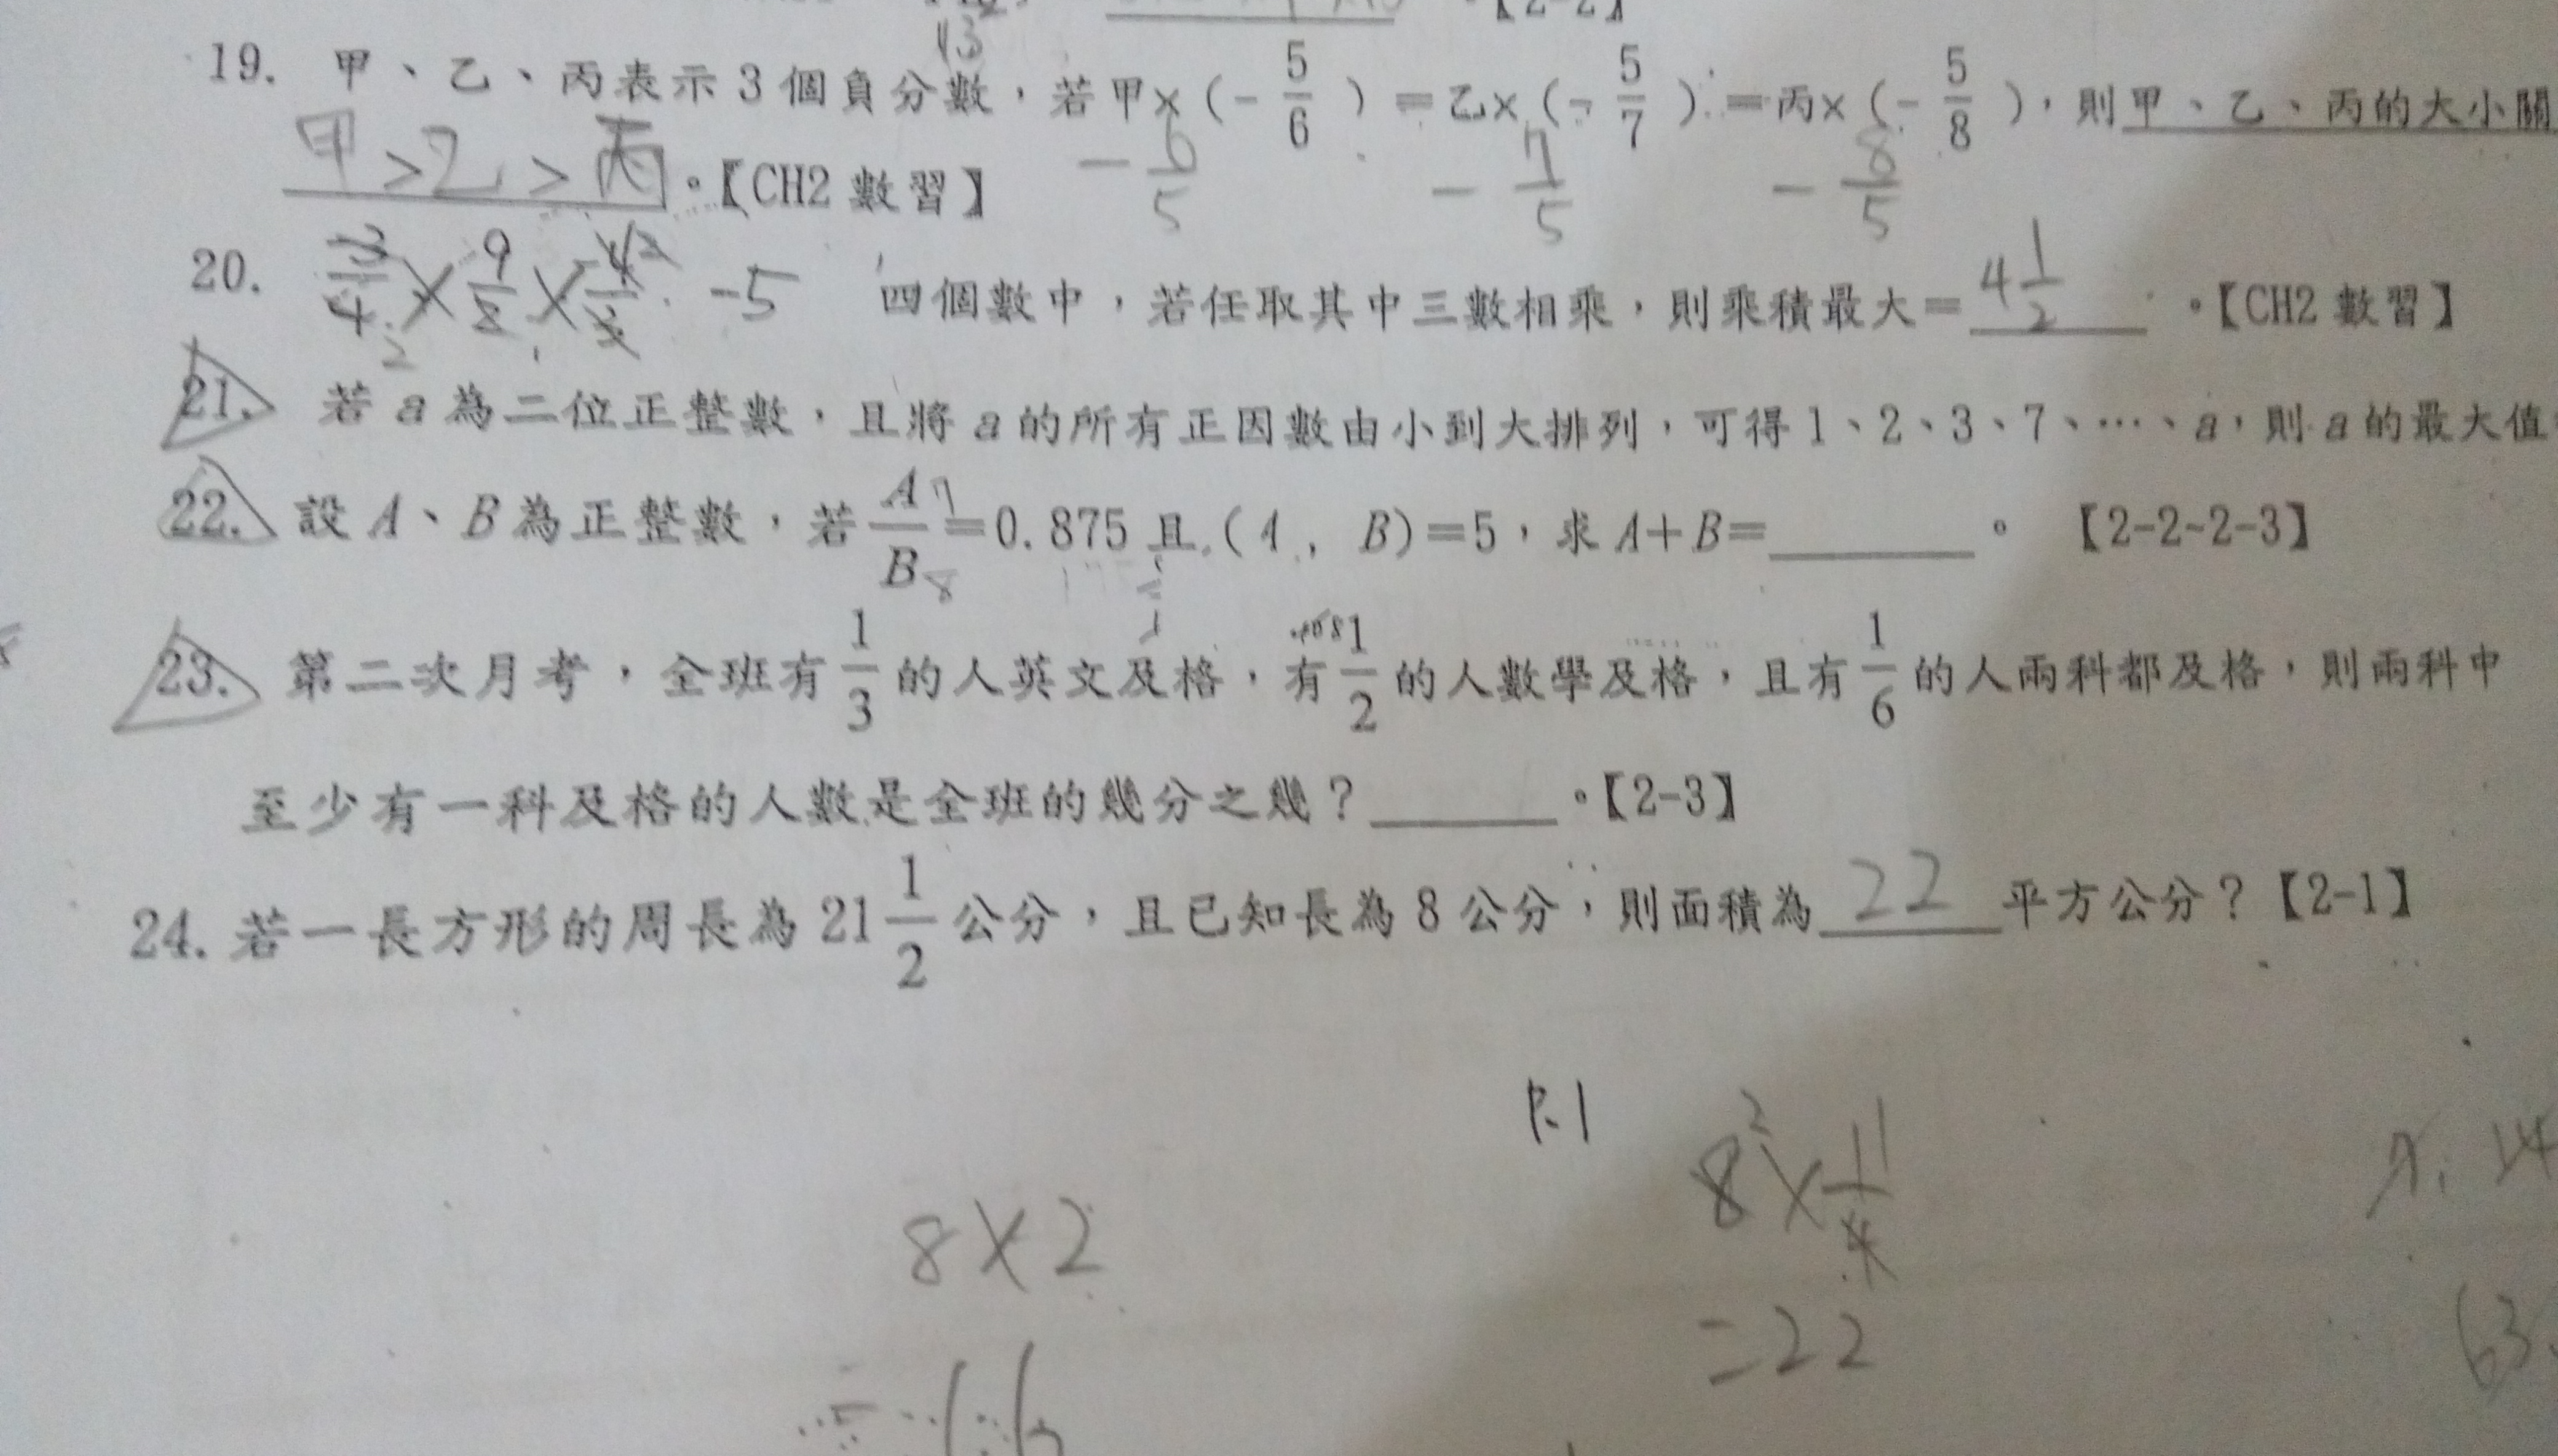 19. 甲、乙、丙表示3個負分數,若甲×(-5/6)=乙×(-5/7)=丙×(-5/8),則甲、乙、丙的大小關
甲>乙>丙。【CH2 數習】 -6/5 -7/5 -8/5
20. -3/4 × 9/2 × -4/3 -5 四個數中,若任取其中三數相乘,則乘積最大=4 1/2。【CH2 數習】
21. 若 a 為二位正整數,且將 a 的所有正因數由小到大排列,可得 1、2、3、7、…、a,則 a 的最大值
22. 設 A、B 為正整數,若 A/B =0.875 且 (A, B)=5,求 A+B=______。 【2-2~2-3】
23. 第二次月考,全班有 1/3 的人英文及格,有 1/2 的人數學及格,且有 1/6 的人兩科都及格,則兩科中
至少有一科及格的人數是全班的幾分之幾?______。【2-3】
24. 若一長方形的周長為 21 1/2 公分,且已知長為 8 公分,則面積為 22 平方公分?【2-1】
8×2
8×11/4
=22
63